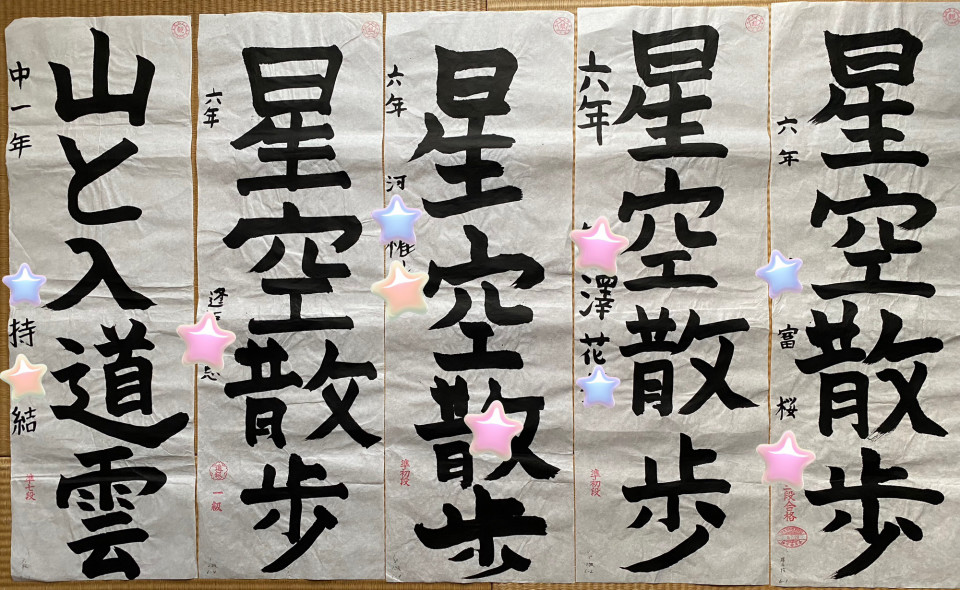 星空散歩
六年 富 桜
段合格
星空散歩
六年 澤花
準初段
星空散歩
六年 河 惟
準初段
星空散歩
六年 逢
一級
山と入道雲
中一年 持 結
準七段